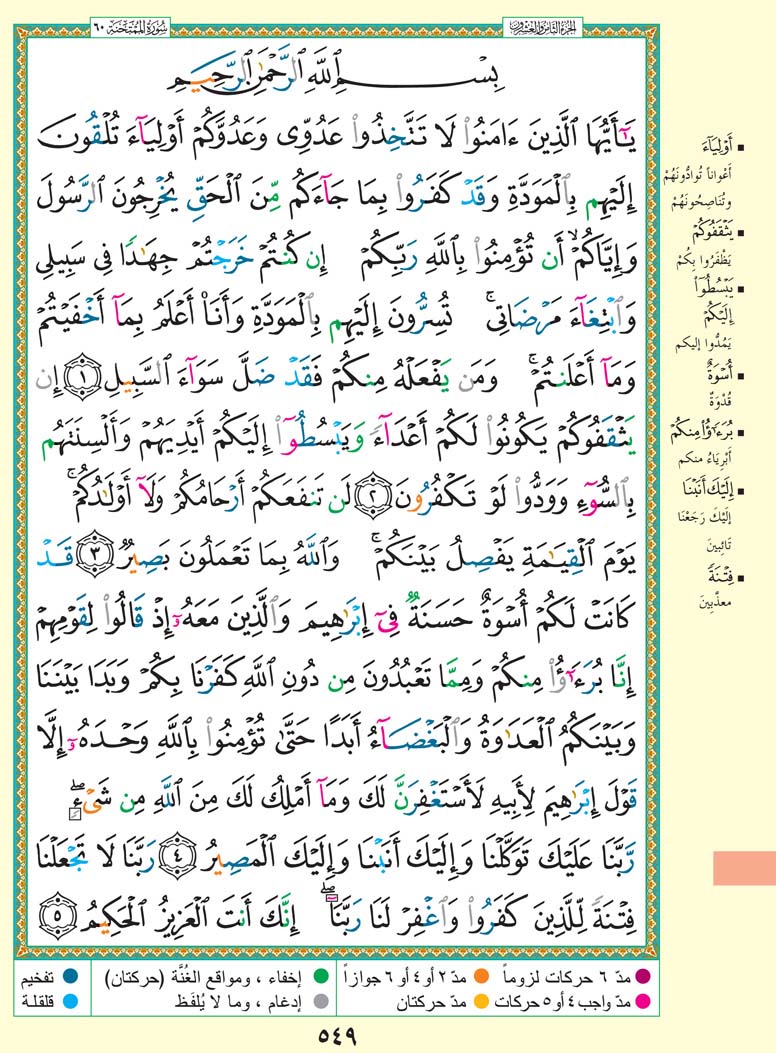 الجزء الثامن والعشرون
سورة الممتحنة ٦٠
بِسْمِ ٱللَّهِ ٱلرَّحْمَٰنِ ٱلرَّحِيمِ
يَٰٓأَيُّهَا ٱلَّذِينَ ءَامَنُوا۟ لَا تَتَّخِذُوا۟ عَدُوِّى وَعَدُوَّكُمْ أَوْلِيَآءَ تُلْقُونَ
إِلَيْهِم بِٱلْمَوَدَّةِ وَقَدْ كَفَرُوا۟ بِمَا جَآءَكُم مِّنَ ٱلْحَقِّ يُخْرِجُونَ ٱلرَّسُولَ
وَإِيَّاكُمْ ۙ أَن تُؤْمِنُوا۟ بِٱللَّهِ رَبِّكُمْ إِن كُنتُمْ خَرَجْتُمْ جِهَٰدًا فِى سَبِيلِى
وَٱبْتِغَآءَ مَرْضَاتِى ۚ تُسِرُّونَ إِلَيْهِم بِٱلْمَوَدَّةِ وَأَنَا۠ أَعْلَمُ بِمَآ أَخْفَيْتُمْ
وَمَآ أَعْلَنتُمْ ۚ وَمَن يَفْعَلْهُ مِنكُمْ فَقَدْ ضَلَّ سَوَآءَ ٱلسَّبِيلِ ١ إِن
يَثْقَفُوكُمْ يَكُونُوا۟ لَكُمْ أَعْدَآءً وَيَبْسُطُوٓا۟ إِلَيْكُمْ أَيْدِيَهُمْ وَأَلْسِنَتَهُم
بِٱلسُّوٓءِ وَوَدُّوا۟ لَوْ تَكْفُرُونَ ٢ لَن تَنفَعَكُمْ أَرْحَامُكُمْ وَلَآ أَوْلَٰدُكُمْ ۚ
يَوْمَ ٱلْقِيَٰمَةِ يَفْصِلُ بَيْنَكُمْ ۚ وَٱللَّهُ بِمَا تَعْمَلُونَ بَصِيرٌ ٣ قَدْ
كَانَتْ لَكُمْ أُسْوَةٌ حَسَنَةٌ فِىٓ إِبْرَٰهِيمَ وَٱلَّذِينَ مَعَهُۥٓ إِذْ قَالُوا۟ لِقَوْمِهِمْ
إِنَّا بُرَءَٰٓؤُا۟ مِنكُمْ وَمِمَّا تَعْبُدُونَ مِن دُونِ ٱللَّهِ كَفَرْنَا بِكُمْ وَبَدَا بَيْنَنَا
وَبَيْنَكُمُ ٱلْعَدَٰوَةُ وَٱلْبَغْضَآءُ أَبَدًا حَتَّىٰ تُؤْمِنُوا۟ بِٱللَّهِ وَحْدَهُۥٓ إِلَّا
قَوْلَ إِبْرَٰهِيمَ لِأَبِيهِ لَأَسْتَغْفِرَنَّ لَكَ وَمَآ أَمْلِكُ لَكَ مِنَ ٱللَّهِ مِن شَىْءٍ ۖ
رَّبَّنَا عَلَيْكَ تَوَكَّلْنَا وَإِلَيْكَ أَنَبْنَا وَإِلَيْكَ ٱلْمَصِيرُ ٤ رَبَّنَا لَا تَجْعَلْنَا
فِتْنَةً لِّلَّذِينَ كَفَرُوا۟ وَٱغْفِرْ لَنَا رَبَّنَآ ۖ إِنَّكَ أَنتَ ٱلْعَزِيزُ ٱلْحَكِيمُ ٥
أَوْلِيَآءَ
أَعْوَاناً تُوَادُّونَهُمْ
وتُنَاصِحُونَهُمْ
يَثْقَفُوكُمْ
يَظْفَرُوا بِكُمْ
يَبْسُطُوٓا۟
إِلَيْكُمْ
يَمُدُّوا إليكم
أُسْوَةٌ
قُدْوَةٌ
بُرَءَٰٓؤُا۟ مِنكُمْ
أَبْرِيَاءُ منكم
إِلَيْكَ أَنَبْنَا
إلَيْكَ رَجَعْنَا
تَائِبينَ
فِتْنَةً
معذَّبينَ
مدّ ٦ حركات لزوماً
مدّ ٢ أو ٤ أو ٦ جوازاً
إخفاء ، ومواقع الغُنَّة (حركتان)
تفخيم
مدّ واجب ٤ أو ٥ حركات
مدّ حركتان
إدغام ، وما لا يُلفَظ
قلقلة
٥٤٩